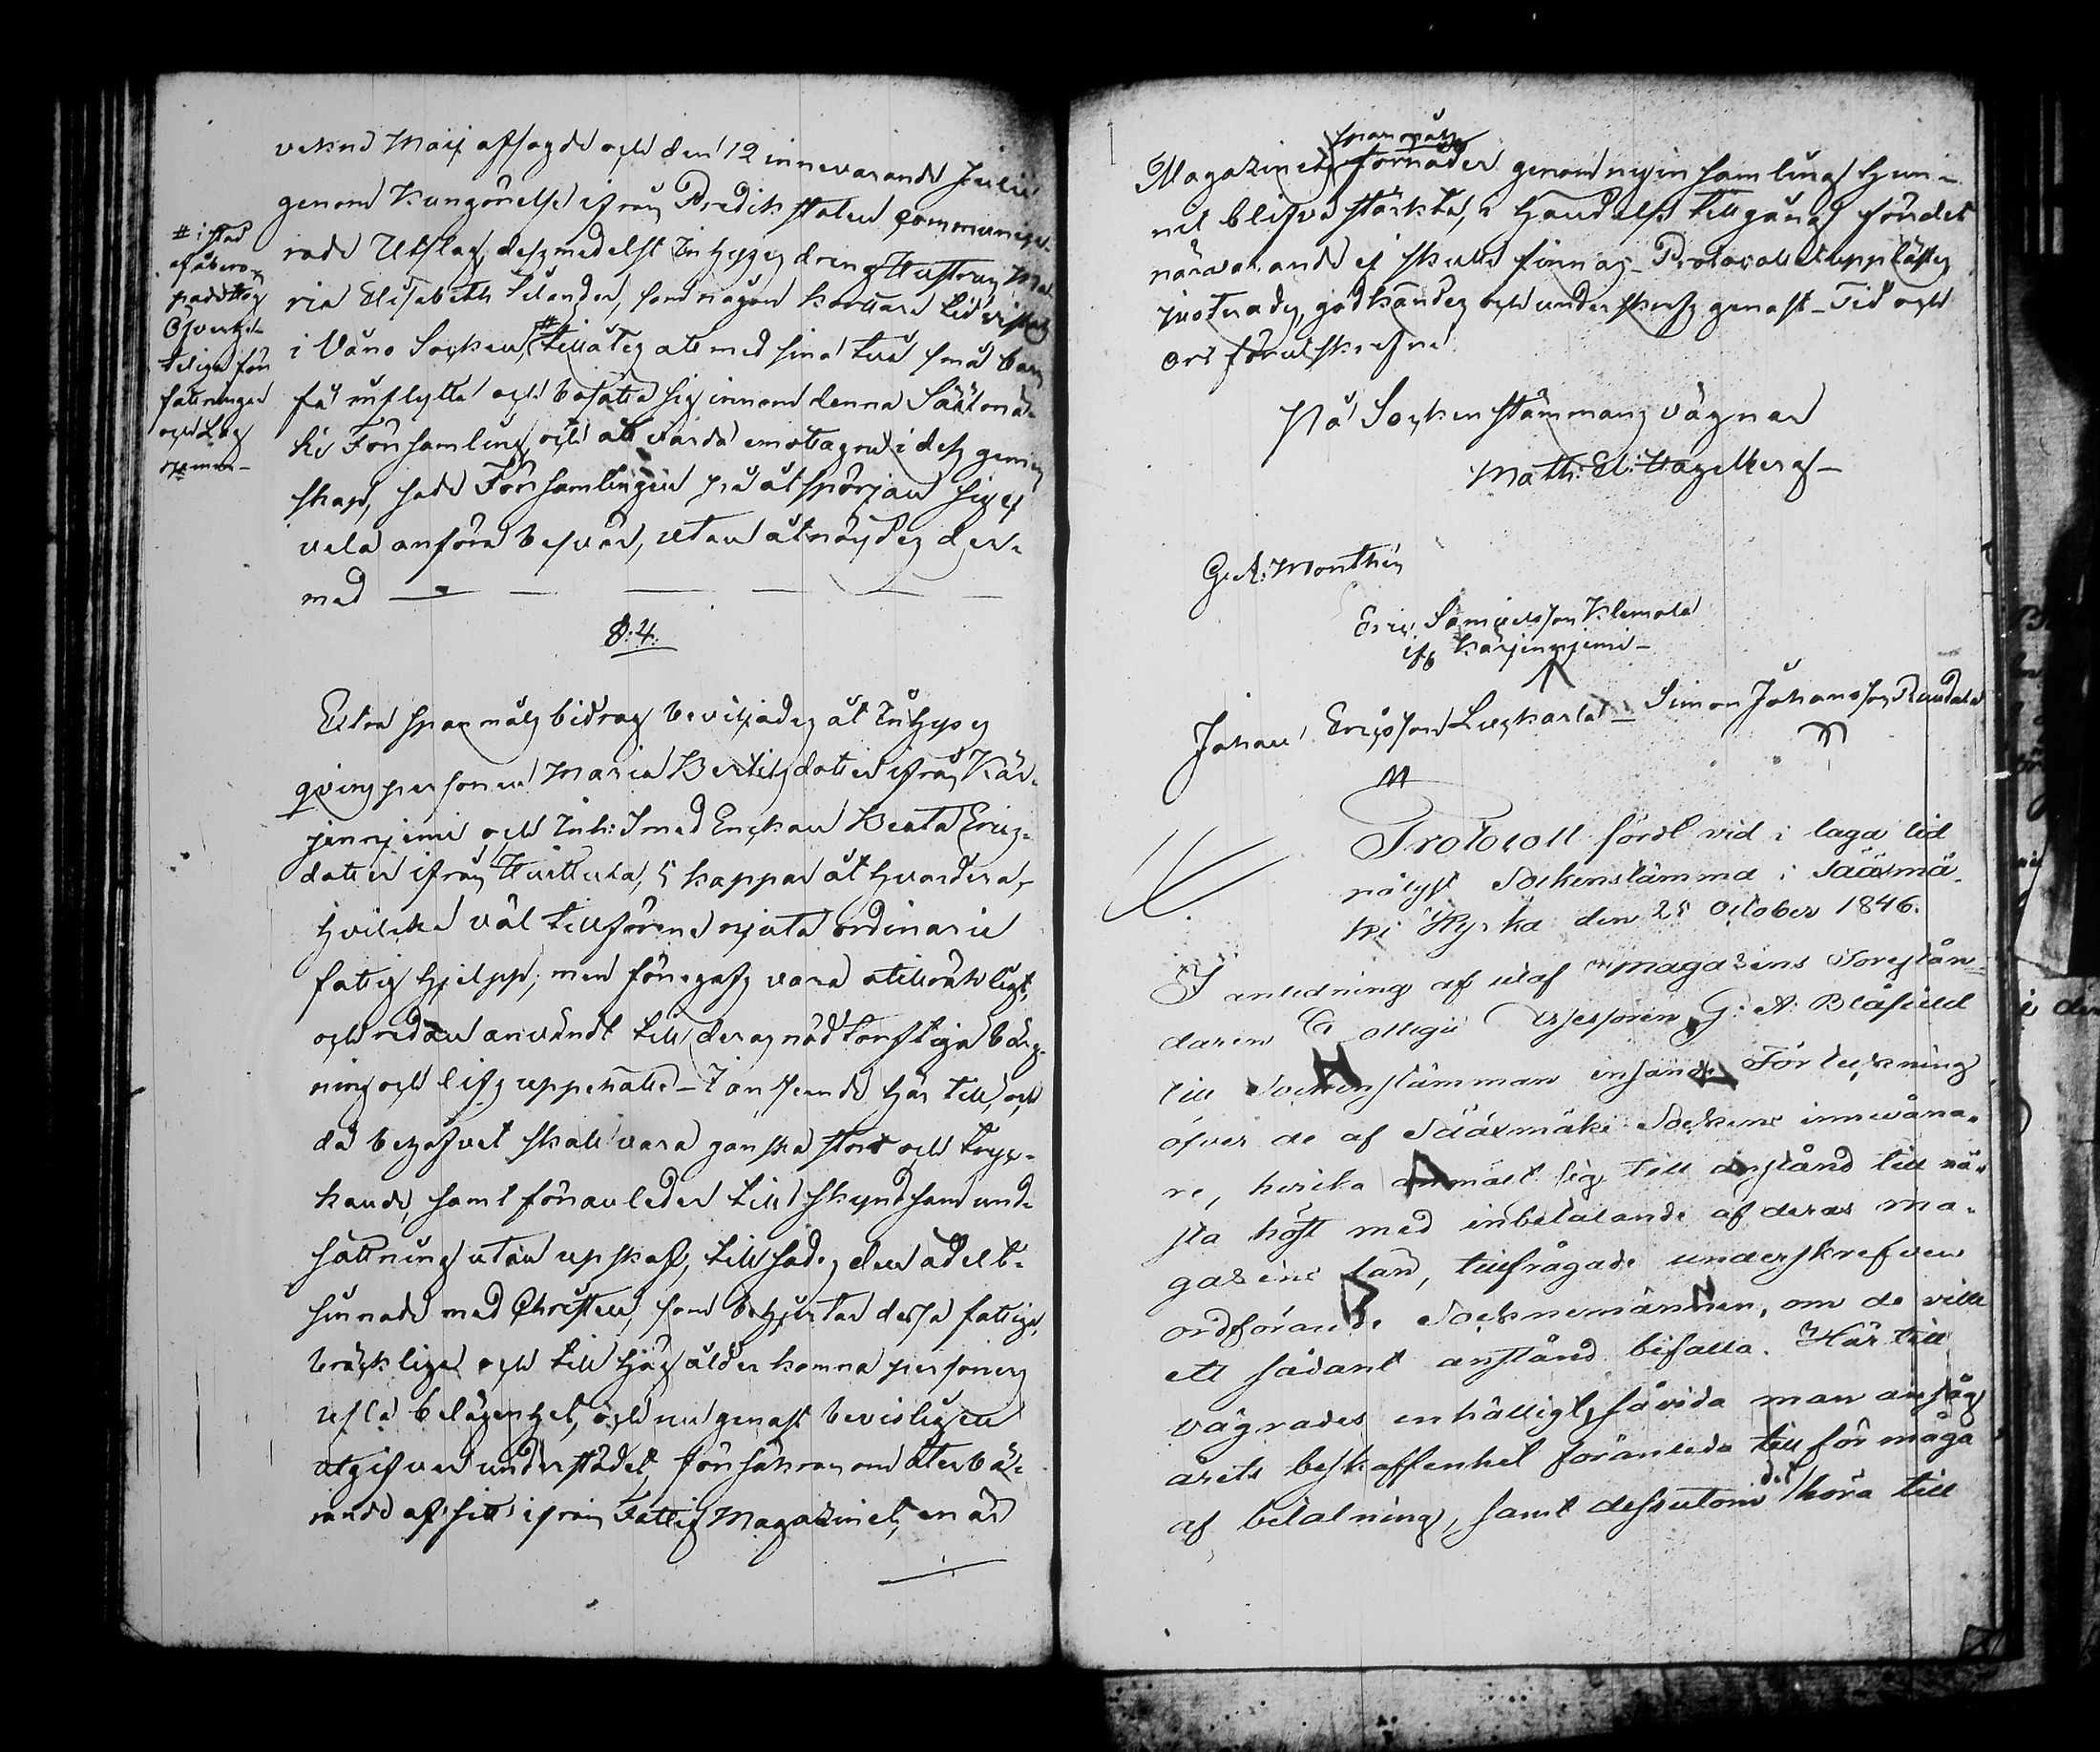 vekne Maij afsagde och den 12 innevarande Julii
genom Kungörelse ifrån Predikstolen communice-
rade Utslag, desmedelst Inhyses drengs Hustrun Ma-
ria Elisabeth Tilander, som någon kortare tid vistats
i Vånå Socken, # tillåtes att med sina två små barn
få inflytta och bosätta sig innom denna Sääxmä-
ki Församling, och att varda emottagen i dess gemen-
skap, sade Församlingen på åtspörjan sig ej
vela anföra besvär, utan åtnöjdes der-
med
# i stöd
af åbero-
pad Hög
Öfverhe-
teliga för
fattningar
och Lag
rymen
§. 4.
Extra spanmåls bidrag beviljades åt Inhyses
qvinspersonen Maria Bertilsdotter ifrån Kär-
jenniemi och Inh: Smeds Enkan Beata Erics-
dotter ifrån Huittula, 5 kappar åt hvardera,
hvilka väl tillförene njuta ordinarie
fattighjelpp; men föregafs vara otillräkligt,
och redan användt till deras nödtorftiga bärg-
ning och lifs uppehälle – I anseende här till, och
då behofvet skall vara ganska stort och tryc-
kande, samt föranleder till skyndsam und-
sättning utan uppskof, tillsades den ädelt-
sinnade med Christen, som behjertar dessa fattiga,
bräckliga och till hög ålder komna personers
usla belägenhet, och nu genast bevisligen
utgifver understödet, försäkran om återbä-
rande af sitt ifrån Fattig Magazinet, en är
Magazinets spanmåls förråder genom ny insamling hun-
nit blifva stärkta, i händelse tillgång för det
närvarande ej skulle finnas – Protocollet upplästes
justerades, godkändes och underskrefs genast – Tid och
Ort förutskrefne
På Sockenstämmans vägnar
Math: El: Hagelberg –
G. A. Monthén
Eric Samuelsson Klemola
ifr Kärjenniemi –
Johan Ericsson Luckarla – Simon Johansson Raudala
Protocoll fördt vid i laga tid
pålyst Sockenstämma i Sääxmä-
ki Kyrka den 25 October 1846.
I anledning af utaf Magazins Förestån-
daren Collegii Assessoren G: A: Blåfield
till Sockenstämman insände Förteckning
öfver de af Sääxmäki Sockens innevåna-
re, hvilka anmält sig till anstånd till nä-
sta höst med inbetalande af deras ma-
gazins lån, tillfrågade underskrefven
ordförande Socknemännen, om de ville
ett sådant anstånd bifalla. Här till
vägrades enhälligt, såvida man ansåg
årets beskaffenhet föranleda till förmåga
af betalning, samt dessutom det höra till